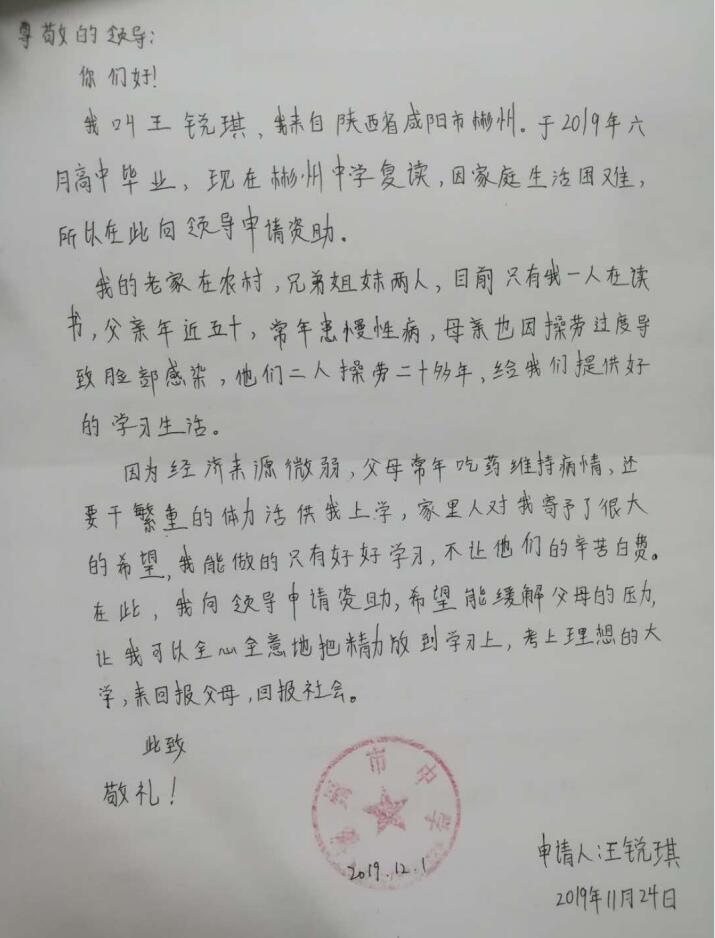 尊敬的领导:
你们好!
我叫王锐琪,我来自陕西省咸阳市彬州。于2019年六
月高中毕业,现在彬州中学复读,因家庭生活困难,
所以在此向领导申请资助。
我的老家在农村,兄弟姐妹两人,目前只有我一人在读
书,父亲年近五十,常年患慢性病,母亲也因操劳过度导
致脸部感染,他们二人操劳二十多年,给我们提供好
的学习生活。
因为经济来源微弱,父母常年吃药维持病情,还
要干繁重的体力活供我上学,家里人对我寄予了很大
的希望,我能做的只有好好学习,不让他们的辛苦白费。
在此,我向领导申请资助,希望能缓解父母的压力,
让我可以全心全意地把精力放到学习上,考上理想的大
学,来回报父母,回报社会。
此致
敬礼!
彬州市中学
2019.12.1
申请人:王锐琪
2019年11月24日